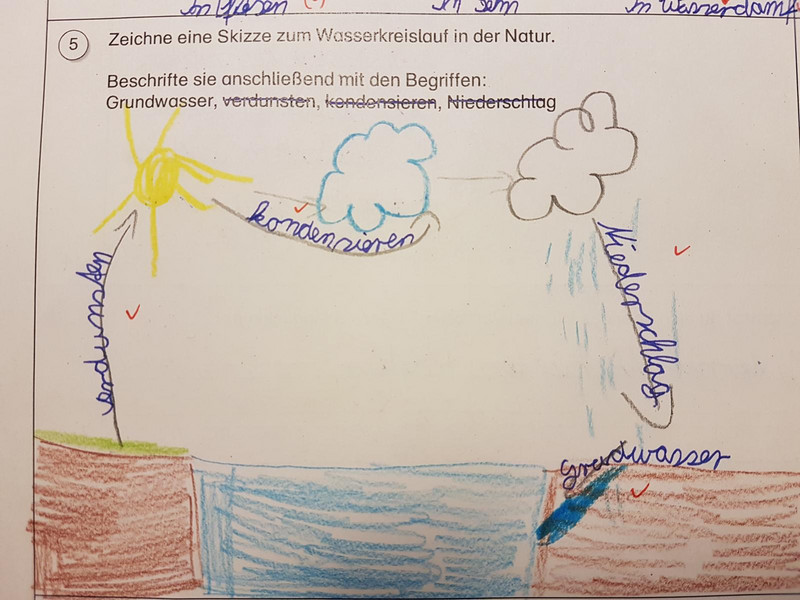 in Pfützen
in
in Wasserdampf
5 Zeichne eine Skizze zum Wasserkreislauf in der Natur.
Beschrifte sie anschließend mit den Begriffen:
Grundwasser, verdunsten, kondensieren, Niederschlag
kondensieren
Niederschlag
verdunsten
Grundwasser